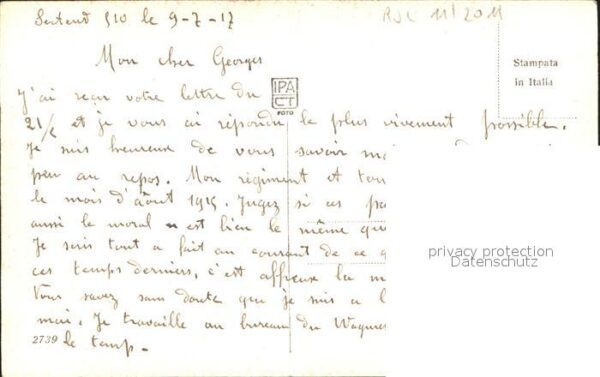 510 le 9-7-17
RJL 11/2011
Mon cher Georges
Stampata
in Italia
IPA
CT
FOTO
J'ai reçu votre lettre du
21/6 et je vous ai répondu le plus vivement possible.
Je suis heureuse de vous savoir
peu au repos. Mon régiment et
le mois d'août 1915. Jugez si ces
aussi le moral est bien le même
Je suis tout a fait au courant de ce
privacy protection
Datenschutz
ces temps derniers, c'est affreux la
Vous savez sans doute que je suis a
mai. Je travaille au bureau du
2739 le temp.